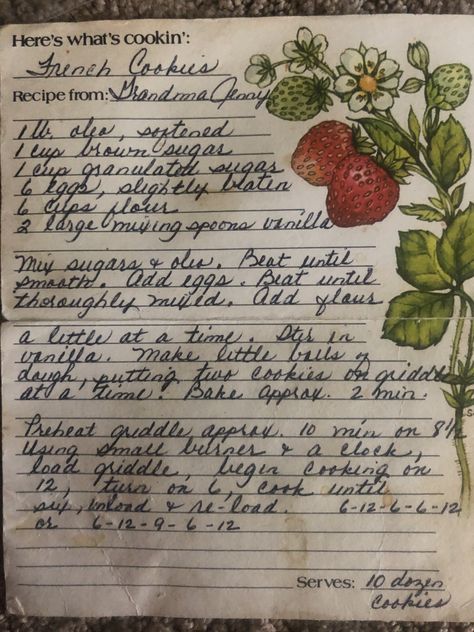 Here's what's cookin':
French Cookies
Recipe from: Grandma Jenny
1 lb. oleo, softened
1 cup brown sugar
1 cup granulated sugar
6 eggs, slightly beaten
6 cups flour
2 large mixing spoons vanilla
Mix sugars & oleo. Beat until
smooth. Add eggs. Beat until
thoroughly mixed. Add flour
a little at a time. Stir in
vanilla. Make little balls of
dough, putting two cookies on griddle
at a time. Bake approx. 2 min.
Preheat griddle approx. 10 min on 8½
Using small burner & a clock,
load griddle, begin cooking on
12, turn on 6, cook until
six, unload & re-load. 6-12-6-6-12
or 6-12-9-6-12
Serves: 10 dozen
cookies